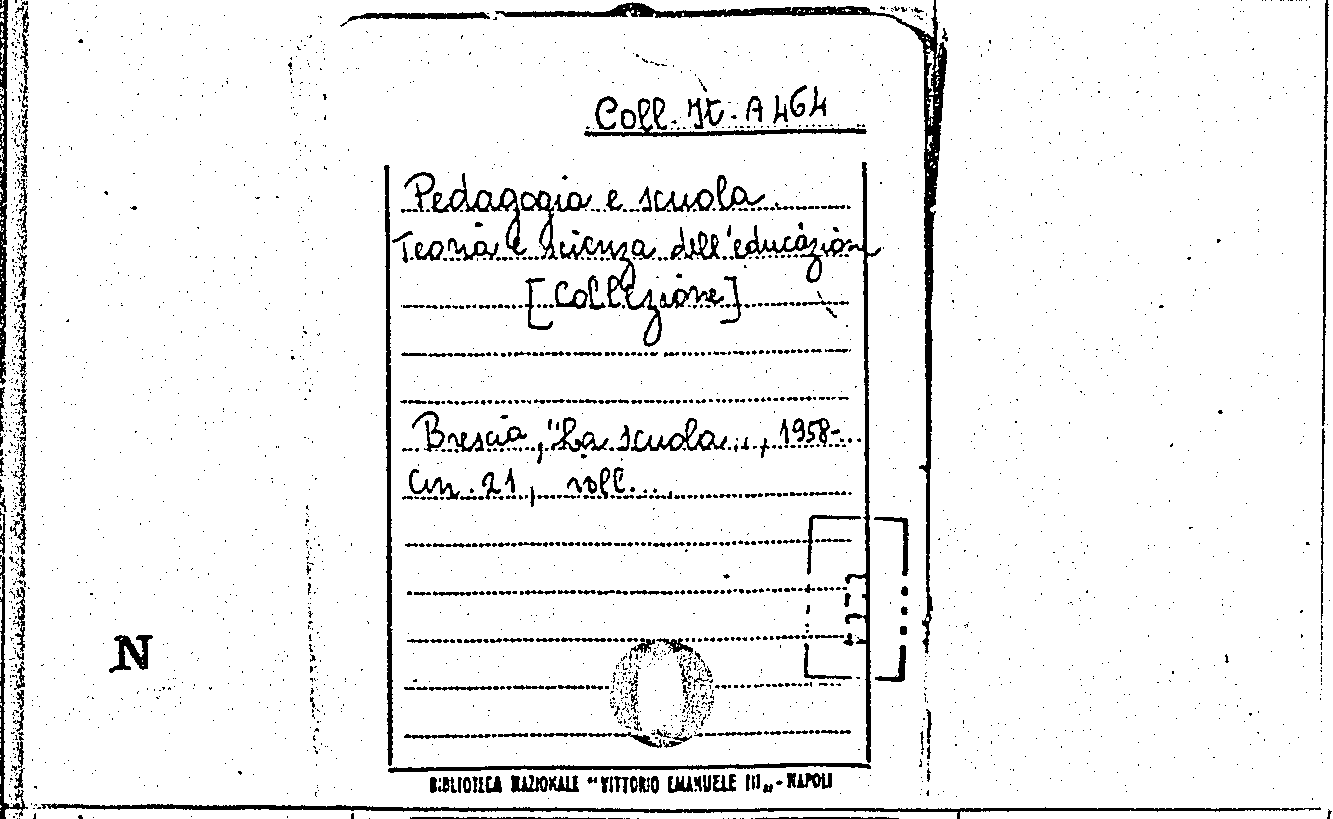 Coll. It. A 464
Pedagogia e scuola.
Teoria e scienza dell'educazione
[Collezione]
Brescia, "La scuola„, 1958-
cm. 21, voll...
N
BIBLIOTECA NAZIONALE "VITTORIO EMANUELE III„ - NAPOLI